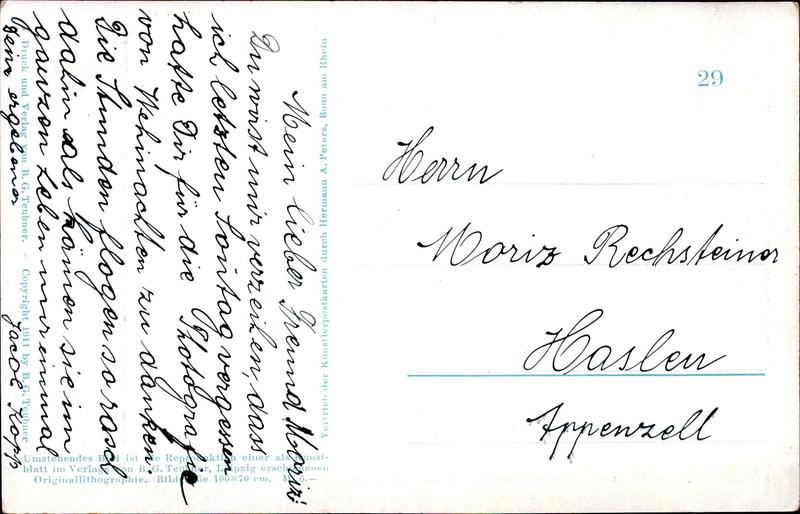 Mein lieber Freund Moriz!
Du wirst mir verzeihen, dass
ich letzten Sontag vergessen
hatte Dir für die Photografie
von Wehinachten zu danken.
Die Stunden flogen so rasch
dahin als kämen sie im
ganzen Leben nur einmal
Dein ergebener
Jacob Kopp
29
Herrn
Moriz Rechsteiner
Haslen
Appenzell
Vertrieb der Künstlerpostkarten durch Hermann A. Peters, Bonn am Rhein
Druck und Verlag von B. G. Teubner. – Copyright 1911 by B. G. Teubner
Umstehendes Bild ist die Reproduktion einer als Kunst-
blatt im Verlage von B. G. Teubner, Leipzig erschienenen
Originallithographie. Bildgröße 100×70 cm. 6.—